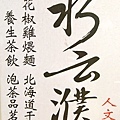 人文
水云濮
北海道干
泡茶品茗
花椒雞煨麵
養生茶飲